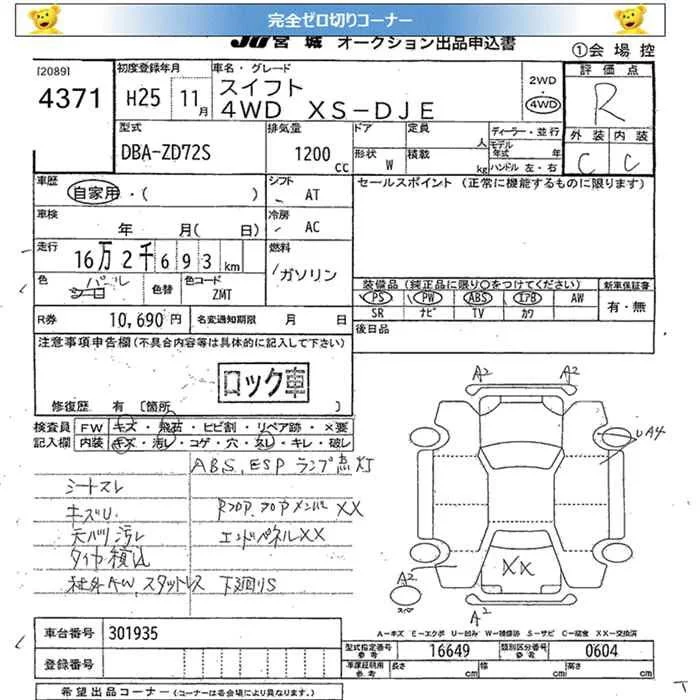 完全ゼロ切りコーナー
JU宮城 オークション出品申込書
①会場控
[2089]
4371
初度登録年月
H25 11月
車名・グレード
スイフト
4WD XS-DJE
2WD
4WD
評価点
R
外装 内装
C C
型式
DBA-ZD72S
排気量
1200 cc
ドア
形状 W
定員 人
積載 kg
ディーラー・並行
モデル年式 年
ハンドル 左・右
車歴
自家用・( )
シフト
AT
セールスポイント (正常に機能するものに限ります)
車検
年 月( 日)
冷房
AC
走行
16万2千693km
燃料
ガソリン
色
パール
色替
色コード
ZMT
装備品(純正品に限り○をつけてください)
新車保証書
PS PW ABS エアB AW
SR ナビ TV カワ
有・無
R券
10,690円
名変通知期限 月 日
後日品
注意事項申告欄(不具合内容等は具体的に記入して下さい)
ロック車
修復歴 有 [箇所 ]
検査員 FW キズ・飛石・ヒビ割・リペア跡・×要
記入欄 内装 キズ・汚レ・コゲ・穴・スレ・キレ・破レ
ABS、ESP ランプ点灯
シートスレ
キズU.
Rフロア、フロアメンバー XX
天バリ汚レ
エンドパネルXX
タイヤ積込
社外AW、スタットレス 下廻りS
A2 A2
UA4
XX
A2
スペア
A2
A-キズ E-エクボ U-凹み W-補修跡 S-サビ C-腐食 XX-交換済
車台番号 301935
登録番号
型式指定番号 参考 16649
類別区分番号 参考 0604
車庫証明用 参考 長さ cm 幅 cm 高さ cm
希望出品コーナー (コーナーは各会場により異なります。)